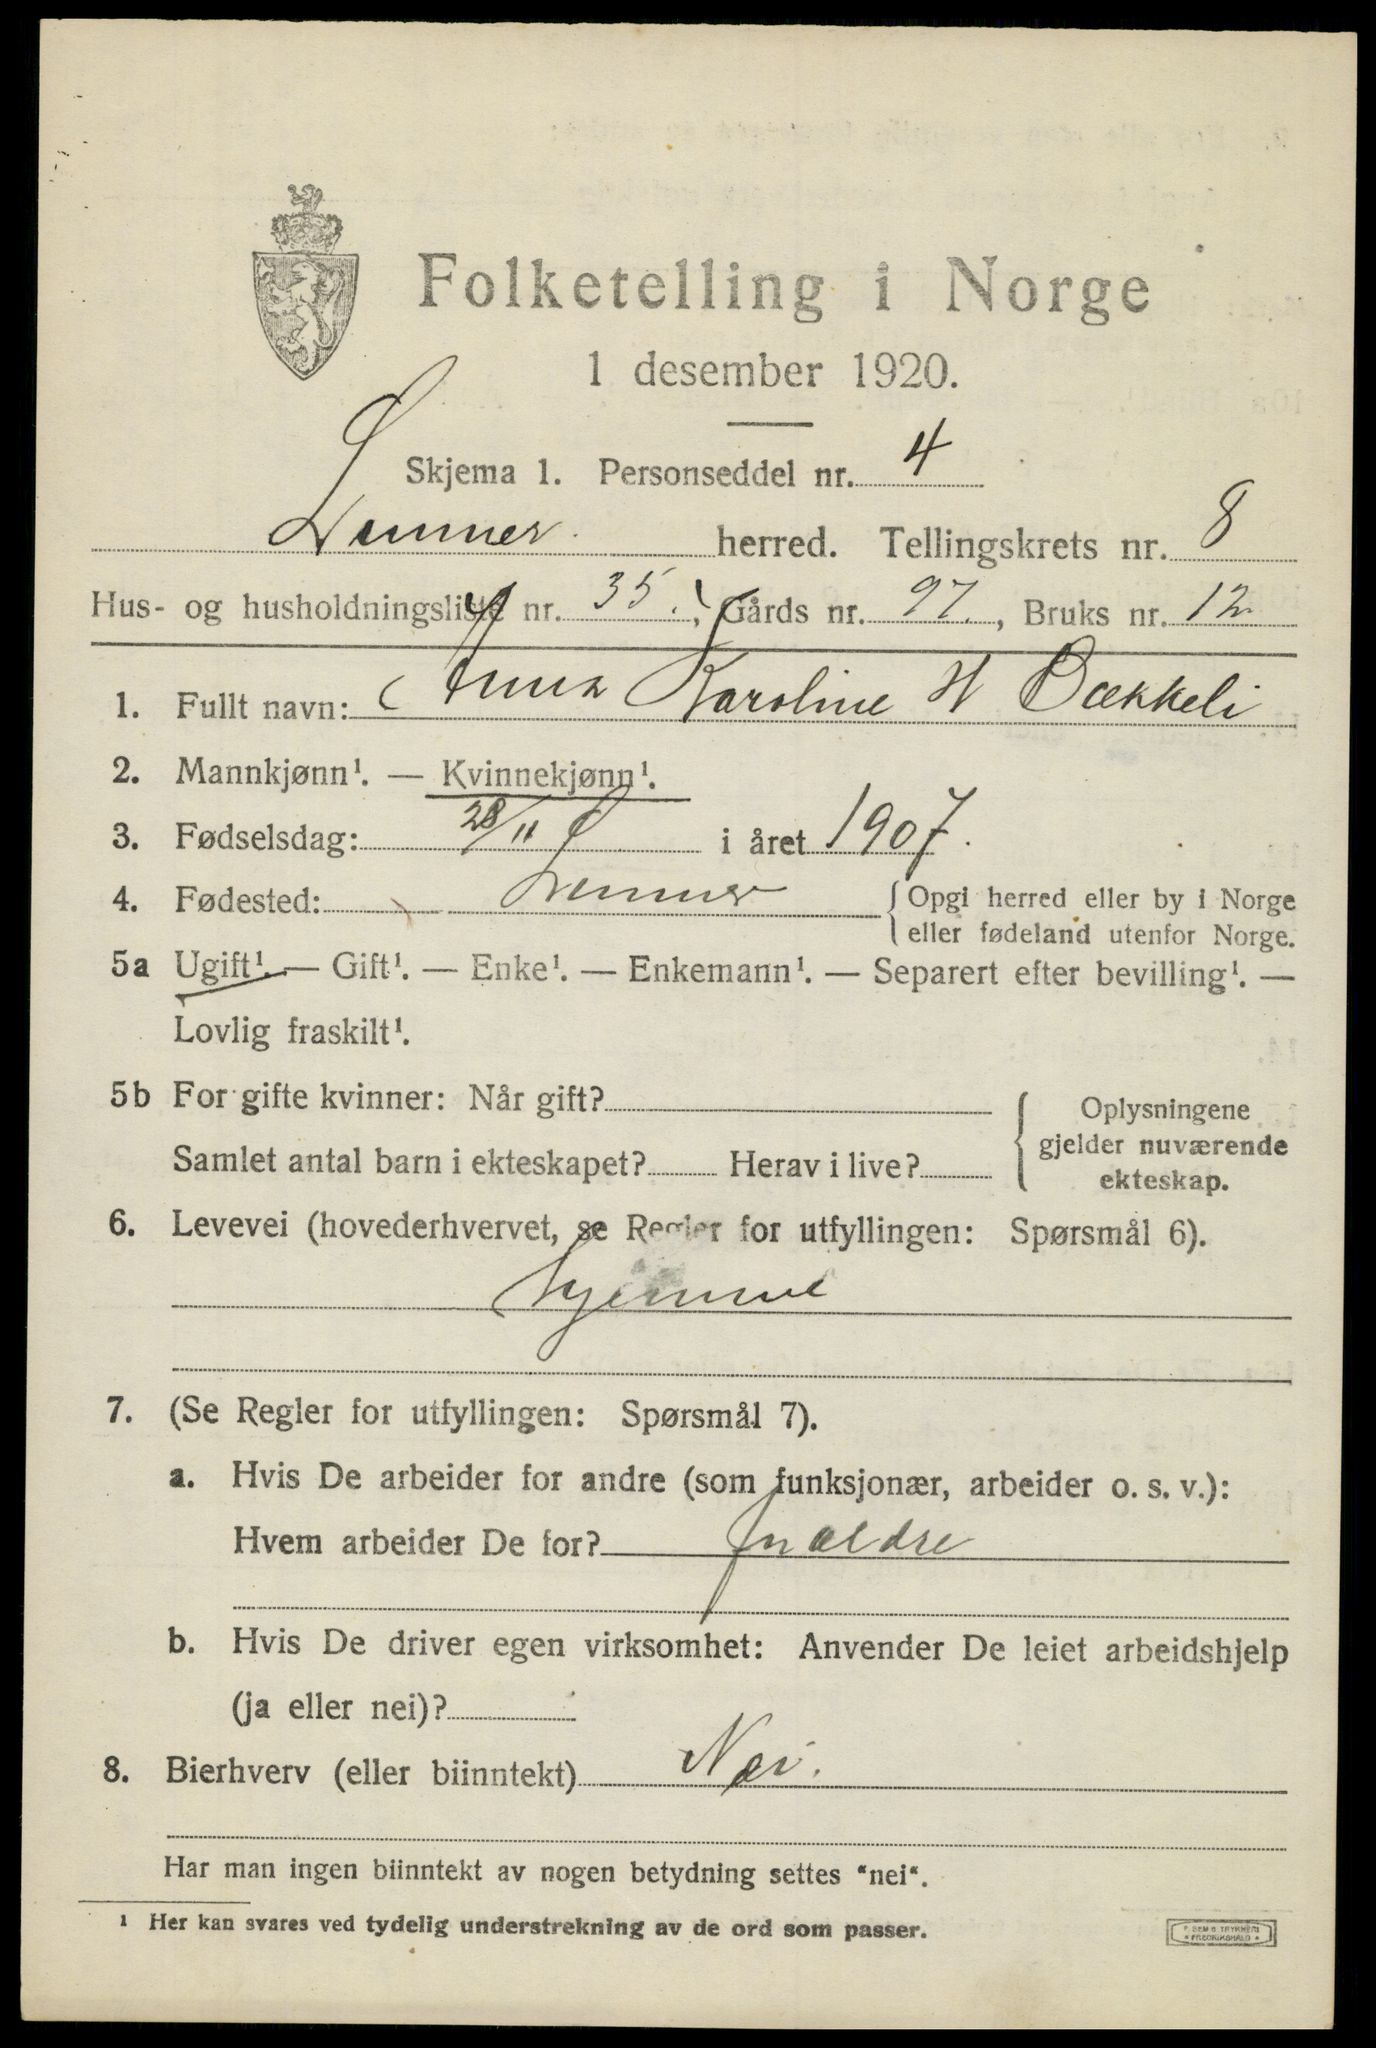 Folketelling i Norge
1 desember 1920.
Skjema 1. Personseddel nr. 4
Lunner herred. Tellingskrets nr. 8
Hus- og husholdningsliste nr. 35, Gårds nr. 97, Bruks nr. 12
1. Fullt navn: Anna Karoline H Bækkeli
2. Mannkjønn¹. — Kvinnekjønn¹.
3. Fødselsdag: 28/11 i året 1907.
4. Fødested: Lunner { Opgi herred eller by i Norge
eller fødeland utenfor Norge.
5a Ugift¹. — Gift¹. — Enke¹. — Enkemann¹. — Separert efter bevilling¹. —
Lovlig fraskilt¹.
5b For gifte kvinner: Når gift?
Samlet antal barn i ekteskapet? Herav i live?
{ Oplysningene
gjelder nuværende
ekteskap.
6. Levevei (hovederhvervet, se Regler for utfyllingen: Spørsmål 6).
hjemme
7. (Se Regler for utfyllingen: Spørsmål 7).
a. Hvis De arbeider for andre (som funksjonær, arbeider o. s. v.):
Hvem arbeider De for? forældre
b. Hvis De driver egen virksomhet: Anvender De leiet arbeidshjelp
(ja eller nei)?
8. Bierhverv (eller biinntekt) Nei.
Har man ingen biinntekt av nogen betydning settes "nei".
¹ Her kan svares ved tydelig understrekning av de ord som passer.